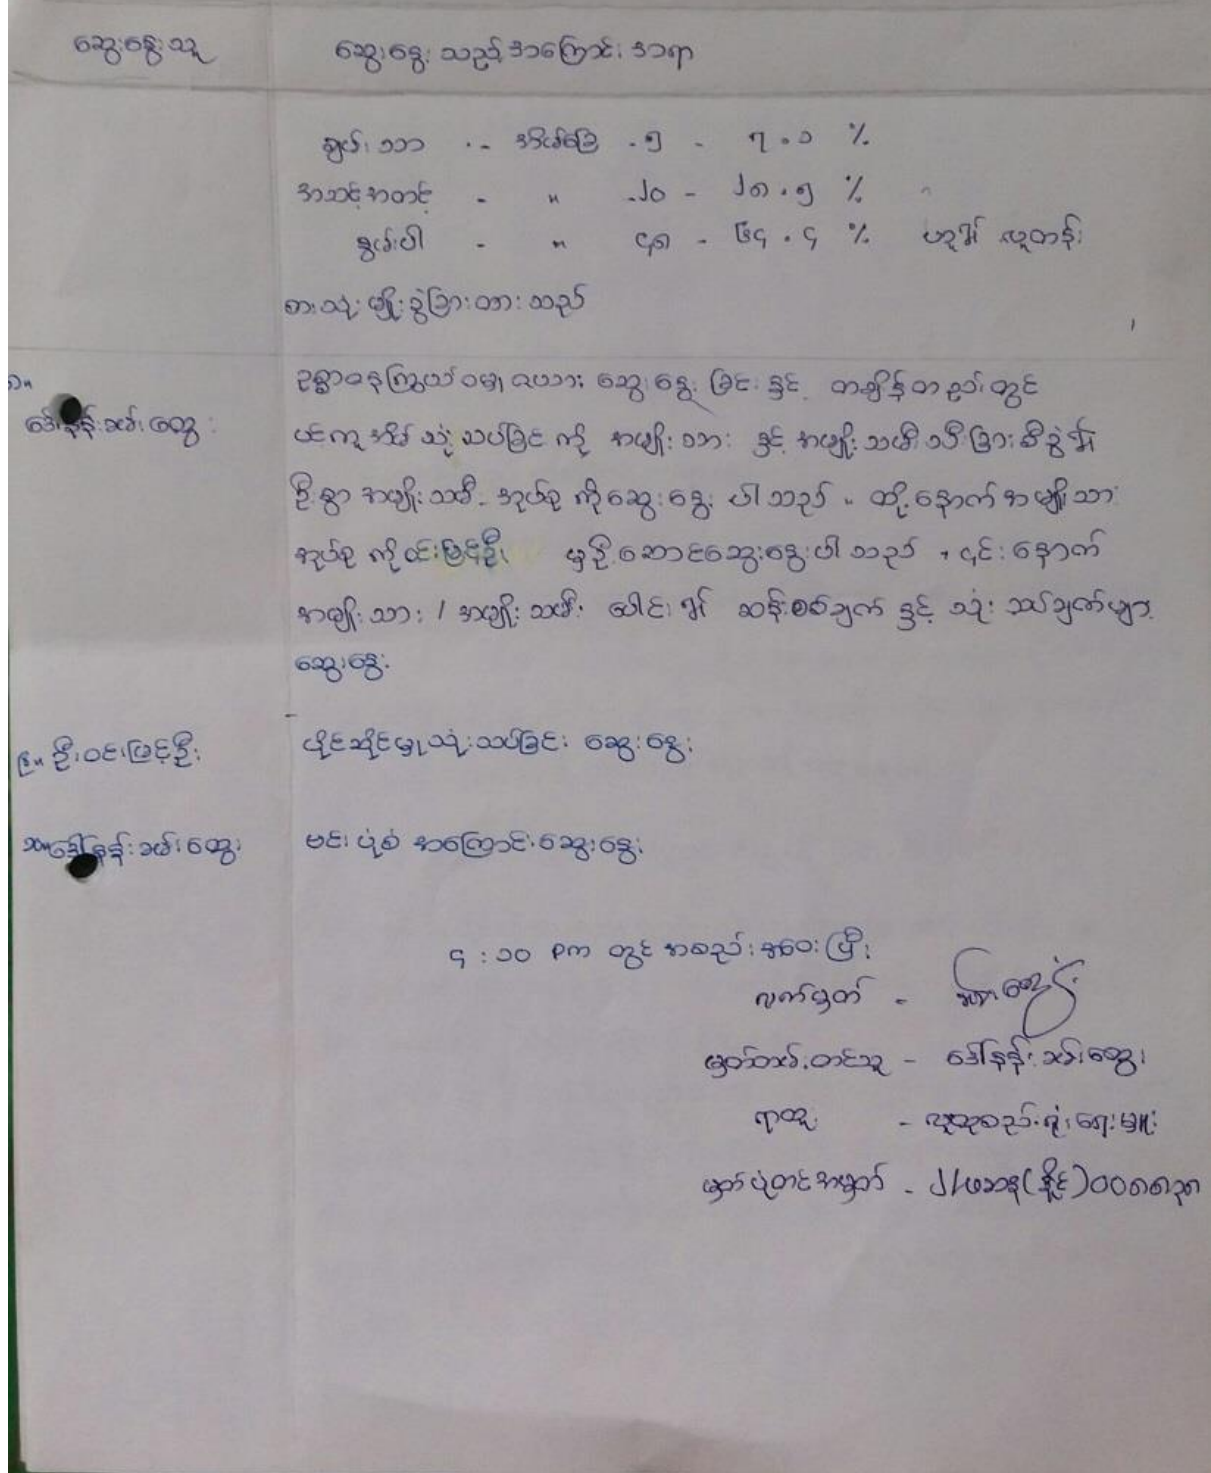 ဆွေးနွေးသူ ဆွေးနွေးသည့်အကြောင်းအရာ
ချမ်းသာ -- အိမ်ခြေ - ၅ - ၇.၁ %
အသင့်အတင့် - " - ၂၀ - ၂၈.၅ %
နွမ်းပါး - " ၄၅ - ၆၄.၄ % ဟူ၍ လူတန်း
စားသုံးမျိုးခွဲခြားထားသည်
ဥစ္စာဓနကြွယ်ဝမှုဇယား ဆွေးနွေးခြင်းနှင့် တချိန်တည်းတွင်
ဒေါ်နန်းခမ်းထွေး
ပင်ကူအိမ်သုံးသပ်ခြင်းကို အမျိုးသား နှင့် အမျိုးသမီး သီးခြားစီခွဲ၍
ဦးစွာ အမျိုးသမီး အုပ်စုကိုဆွေးနွေးပါသည်။ ထို့နောက်အမျိုးသား
အုပ်စုကိုဝင်းမြင့်ဦး မှဦးဆောင်ဆွေးနွေးပါသည်၊ ၎င်းနောက်
အမျိုးသား / အမျိုးသမီး ပေါင်း၍ ဆန်းစစ်ချက် နှင့် သုံးသပ်ချက်များ
ဆွေးနွေး
၉။ ဦးဝင်းမြင့်ဦး ပိုင်ဆိုင်မှုသုံးသပ်ခြင်း ဆွေးနွေး
၁၀။ ဒေါ်နန်းခမ်းထွေး ပုံစံ အကြောင်းဆွေးနွေး
၄:၁၀ pm တွင် အစည်းအဝေးပြီး
လက်မှတ် -
မှတ်တမ်းတင်သူ - ဒေါ်နန်းခမ်းထွေး
ရာထူး - လူထုစည်းရုံးရေးမှူး
မှတ်ပုံတင်အမှတ် -